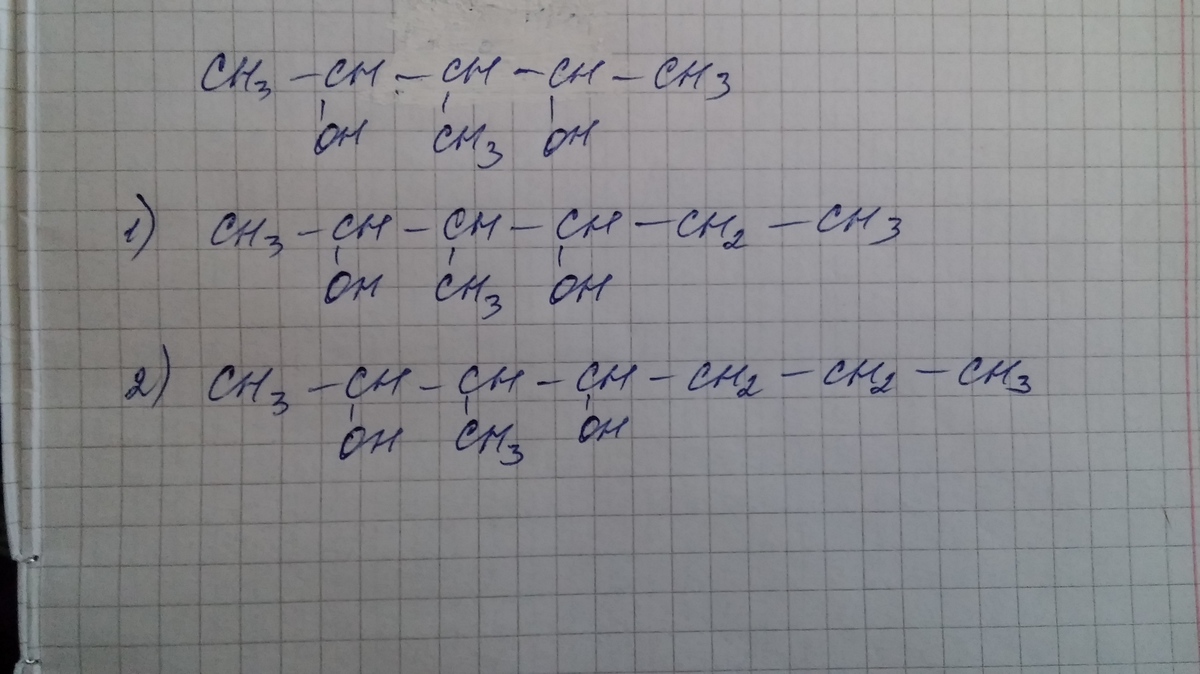 CH3 – CH – CH – CH – CH3
OH CH3 OH
1) CH3 – CH – CH – CH – CH2 – CH3
OH CH3 OH
2) CH3 – CH – CH – CH – CH2 – CH2 – CH3
OH CH3 OH